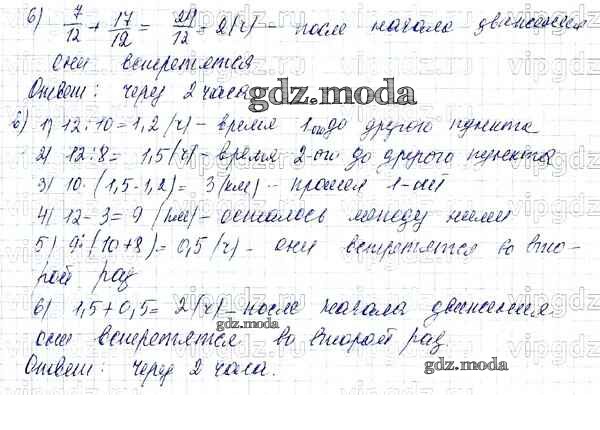 6) 7/12 + 17/12 = 24/12 = 2 (ч) - после начала движения
они встретятся
Ответ: через 2 часа
gdz.moda
в) 1) 12:10=1,2 (ч) - время 1ого до другого пункта
2) 12:8= 1,5 (ч) - время 2-ого до другого пункта
3) 10·(1,5-1,2)= 3 (км) - прошел 1-ый
4) 12-3=9 (км) - осталось между ними
5) 9:(10+8)=0,5 (ч) - они встретятся во вто-
рой раз
6) 1,5+0,5= 2 (ч) - после начала движения
они встретятся во второй раз
gdz.moda
Ответ: через 2 часа.
gdz.moda